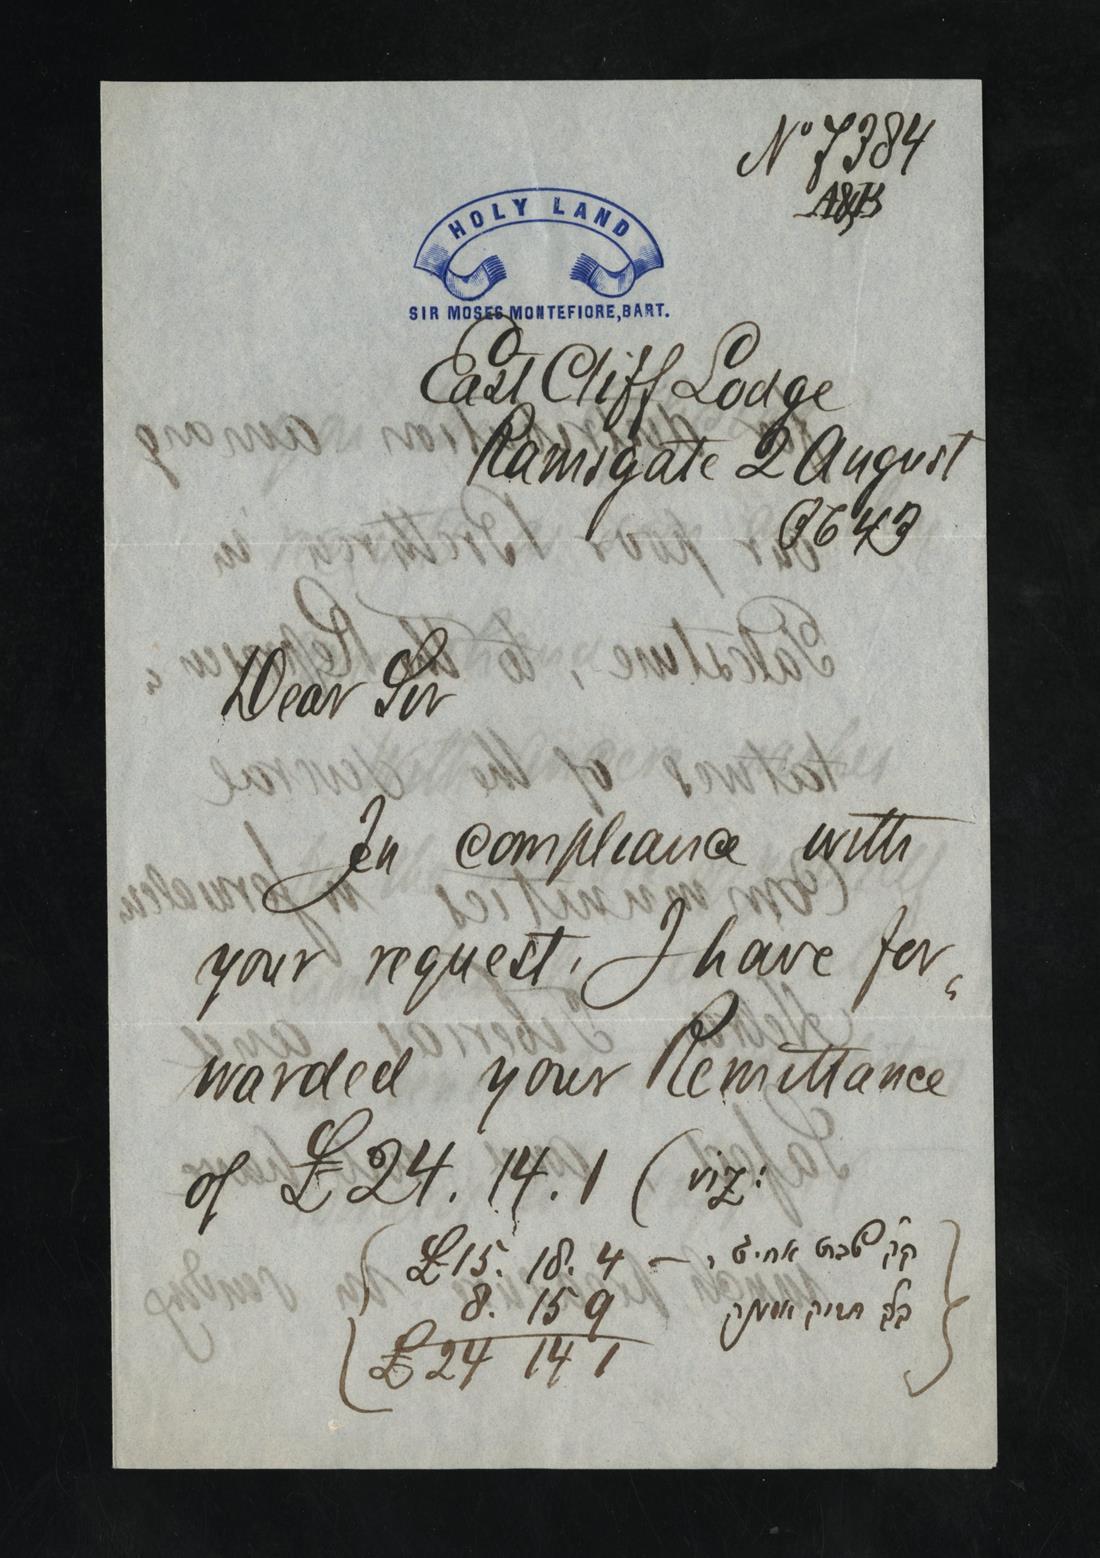 No 7384
A&B
HOLY LAND
SIR MOSES MONTEFIORE, BART.
East Cliff Lodge
Ramsgate 2 August
5643
Dear Sir
In compliance with
your request, I have for„
warded your Remittance
of £24. 14. 1 (viz:
£15. 18. 4 — קק
8. 15 9
£24 14 1